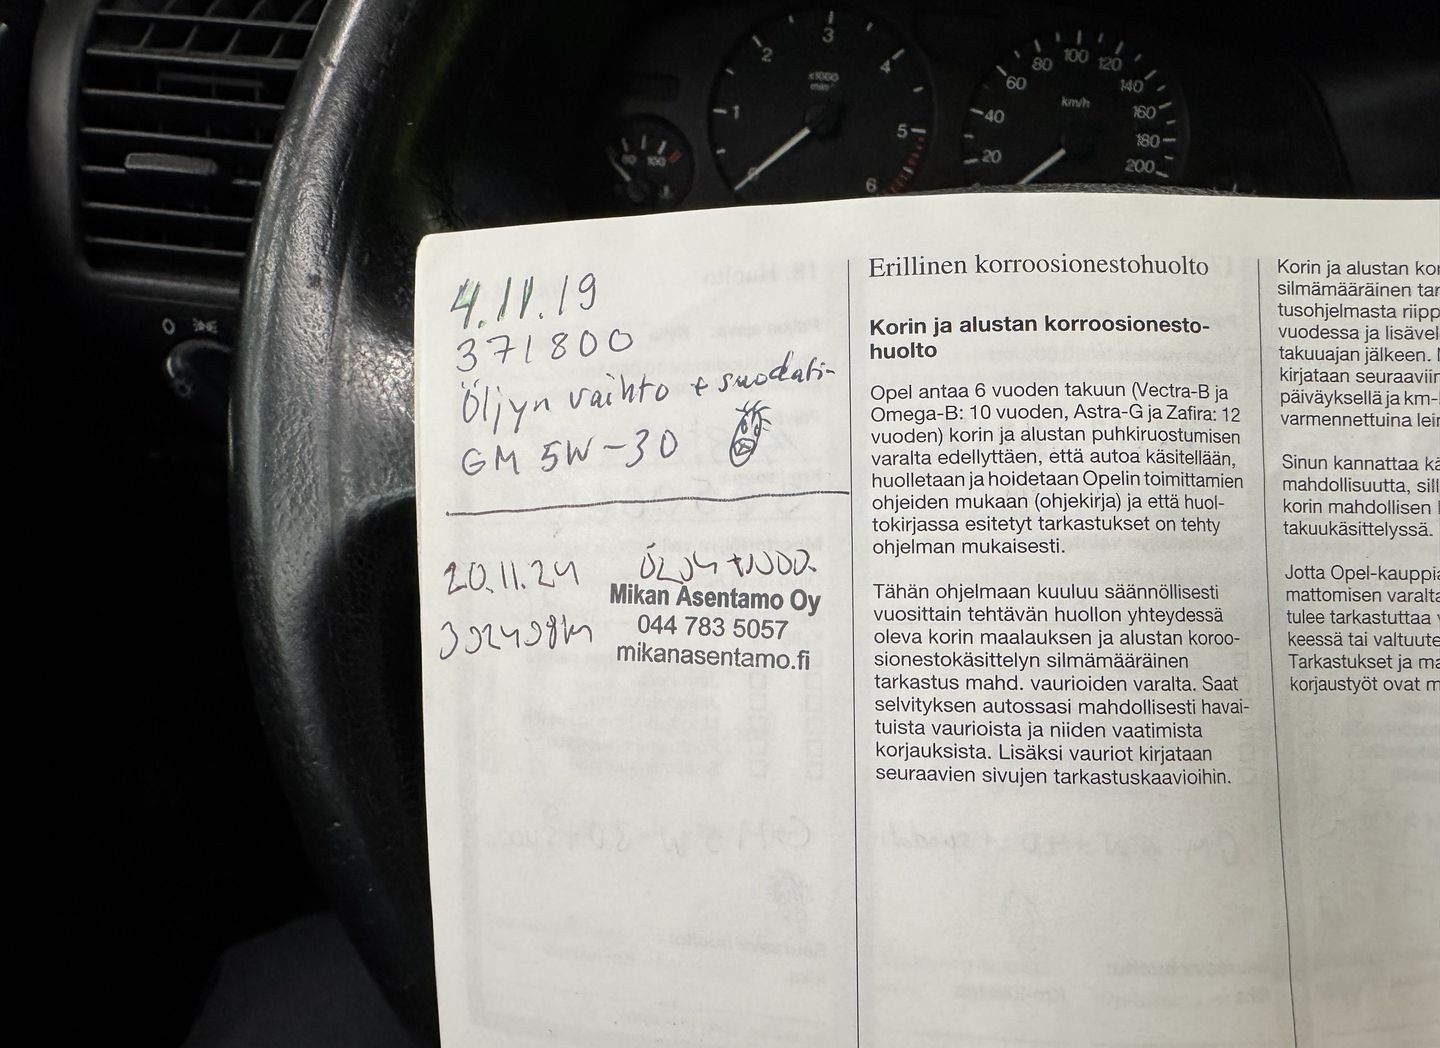 3
2
4
x1000
min
1
5
6
80 100
100
80
120
60
140
km/h
40
160
180
20
200
0
4.11.19
371800
Öljyn vaihto + suodatin
GM 5W-30
20.11.24 ÖLJY +SUOD.
392498km
Mikan Asentamo Oy
044 783 5057
mikanasentamo.fi
Erillinen korroosionestohuolto
Korin ja alustan korroosionesto-
huolto
Opel antaa 6 vuoden takuun (Vectra-B ja
Omega-B: 10 vuoden, Astra-G ja Zafira: 12
vuoden) korin ja alustan puhkiruostumisen
varalta edellyttäen, että autoa käsitellään,
huolletaan ja hoidetaan Opelin toimittamien
ohjeiden mukaan (ohjekirja) ja että huol-
tokirjassa esitetyt tarkastukset on tehty
ohjelman mukaisesti.
Tähän ohjelmaan kuuluu säännöllisesti
vuosittain tehtävän huollon yhteydessä
oleva korin maalauksen ja alustan koroo-
sionestokäsittelyn silmämääräinen
tarkastus mahd. vaurioiden varalta. Saat
selvityksen autossasi mahdollisesti havai-
tuista vaurioista ja niiden vaatimista
korjauksista. Lisäksi vauriot kirjataan
seuraavien sivujen tarkastuskaavioihin.
Korin ja alustan kor
silmämääräinen tar
tusohjelmasta riipp
vuodessa ja lisävel
takuuajan jälkeen.
kirjataan seuraaviin
päiväyksellä ja km-
varmennettuina lei
Sinun kannattaa kä
mahdollisuutta, sill
korin mahdollisen
takuukäsittelyssä.
Jotta Opel-kauppia
mattomisen varalta
tulee tarkastuttaa
keessä tai valtuute
Tarkastukset ja ma
korjaustyöt ovat m